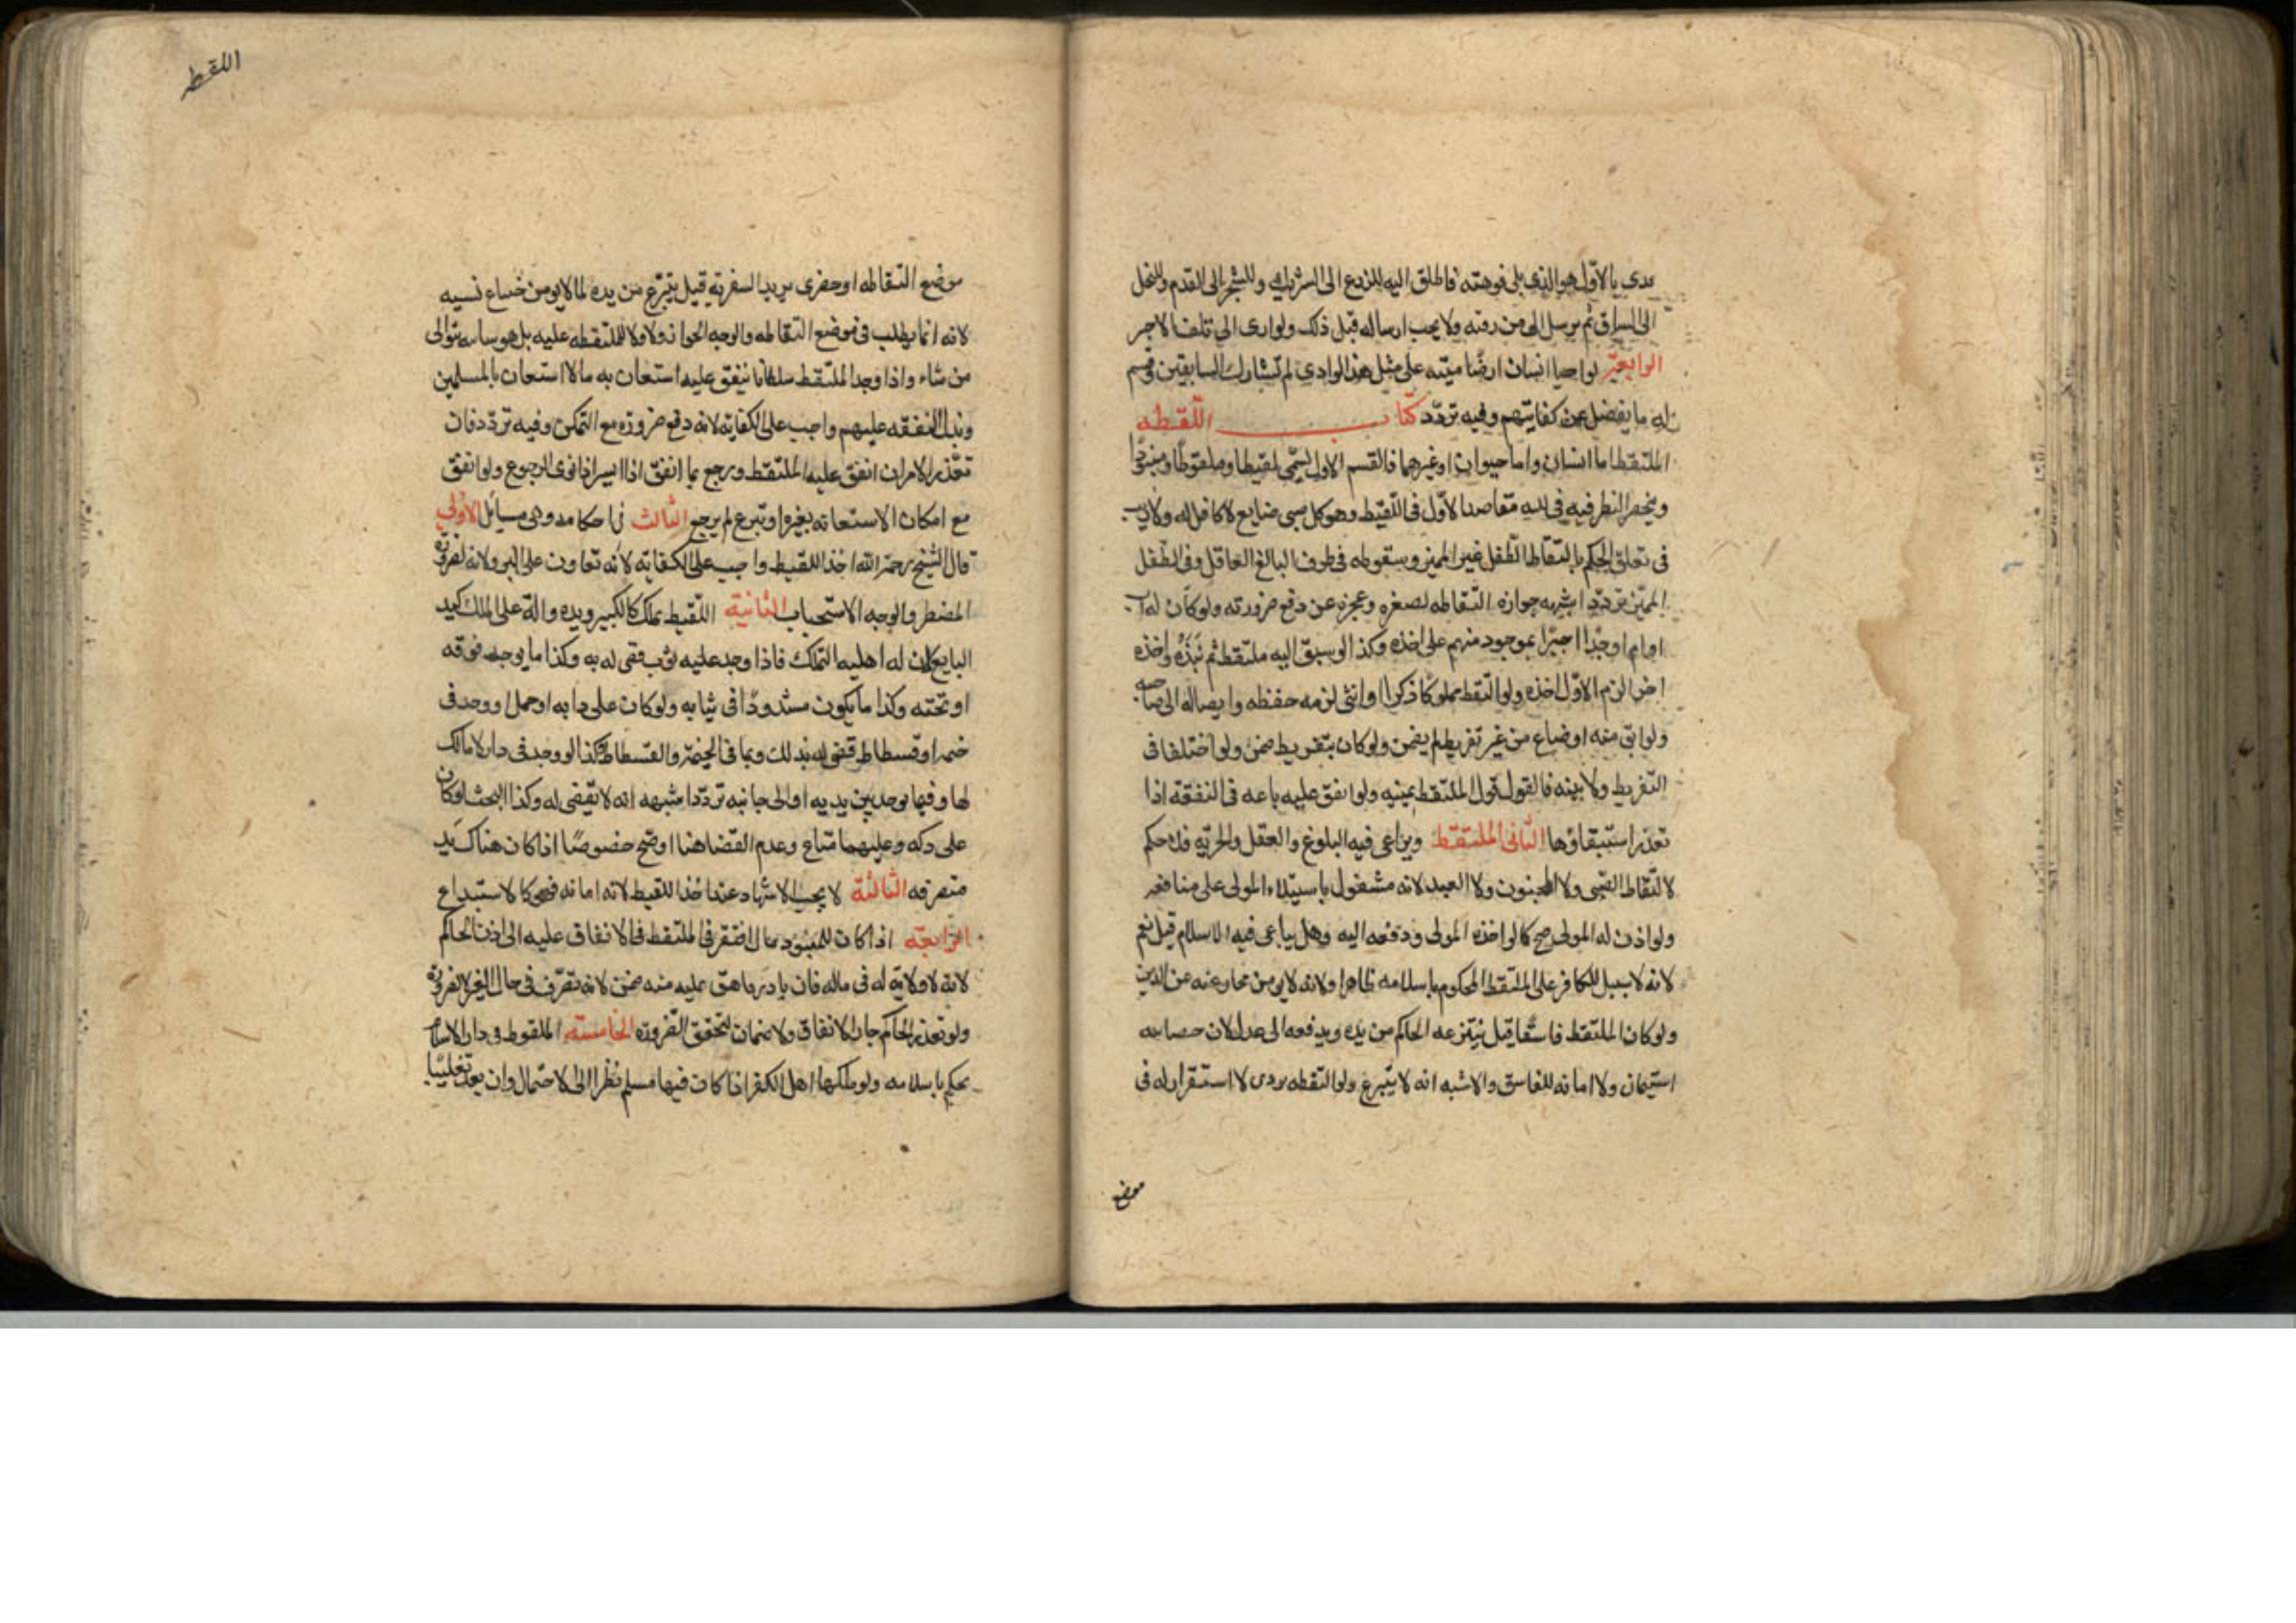 بدى بالاول هو الذى يلى فوهته فاطلق اليه للزرع الى الشراك وللشجر الى القدم وللنخل
الى الساق ثم يرسل الى من دونه ولا يجب ارساله قبل ذلك ولو ادى الى تلف الاخر
الرابعة لو احيا انسان ارضا ميته على مثل هذا الوادى لم يشارك السابقين وقسم
له ما يفضل عن كفايتهم وفيه تردد كتاب اللقطه
الملتقط اما انسان واما حيوان او غيرهما فالقسم الاول يسمى لقيطا وملقوطا ومنبوذا
وينحصر النظر فيه فى مقاصد الاول فى اللقيط وهو كل صبى ضايع لا كافل له ولا ريب
فى تعلق الحكم بالتقاط الطفل غير المميز وسقوطه فى طرف البالغ العاقل وفى الطفل
المميز تردد اشبهه جوازه التقاطه لصغره وعجزه عن دفع ضرورته ولو كان له اب
او ام او جد اجبر الموجود منهم على اخذه وكذا لو سبق اليه ملتقط ثم نبذه واخذه
اخر الزم الاول اخذه ولو التقط مملوكا ذكرا او انثى لزمه حفظه وايصاله الى صاحبه
ولو ابق منه او ضاع من غير تفريط لم يضمن ولو كان بتفريط ضمن ولو اختلفا فى
التفريط ولا بينه فالقول قول الملتقط بيمينه ولو انفق عليه باعه فى النفقة اذا
تعذر استيفاؤها الثانى الملتقط ويراعى فيه البلوغ والعقل والحريه فلا حكم
لالتقاط الصبى ولا المجنون ولا العبد لانه مشغول باستيلاء المولى على منافعه
ولو اذن له المولى صح كما لو اخذه المولى ودفعه اليه وهل يراعى فيه الاسلام قيل نعم
لانه لا سبيل للكافر على الملتقط المحكوم باسلامه ظاهرا ولانه لا يومن مخادعته عن الدين
ولو كان الملتقط فاسقا قيل ينتزعه الحاكم من يده ويدفعه الى عدل لان حضانته
استيمان ولا امانه للفاسق والاشبه انه لا ينتزع ولو التقطه بدوى لا استقرار له فى
موضع
اللقطه
موضع التقاطه او حضرى يريد السفر به قيل ينتزع من يده لما لا يومن من ضياع نسبه
لانه انما يطلب فى موضع التقاطه والوجه الجواز ولا ولا للملتقط عليه بل هو سايبه يتولى
من شاء واذا وجد الملتقط سلطانا ينفق عليه استعان به والا استعان بالمسلمين
وبذل النفقه عليهم واجب على الكفايه لانه دفع ضروره مع التمكن وفيه تردد فان
تعذر الامران انفق عليه الملتقط ورجع بما انفق اذا ايسر اذا نوى الرجوع ولو انفق
مع امكان الاستعانه بغيره او تبرع لم يرجع الثالث فى احكامه وهى مسائل الاولى
قال الشيخ رحمه الله اخذ اللقيط واجب على الكفايه لانه تعاون على البر ولانه لضرورة
المضطر والوجه الاستحباب الثانية اللقيط يملك كالكبير ويده دالة على الملك كيد
البايع لان له اهليه التملك فاذا وجد عليه ثوب قضى له به وكذا ما يوجد فوقه
او تحته وكذا ما يكون مشدودا فى ثيابه ولو كان على دابه او جمل او وجد فى
خيمه او فسطاط قضى له بذلك وبما فى الخيمة والفسطاط وكذا لو وجد فى دار لا مالك
لها وفيما يوجد بين يديه او الى جانبه تردد اشبهه انه لا يقضى له وكذا البحث لو كان
على دكه وعليهما متاع وعدم القضا هنا اوضح خصوصا اذا كان هناك يد
متصرفه الثالثة لا يجب الاشهاد عند اخذ اللقيط لانه امانه فهو كالاستيداع
الرابعه اذا كان للمنبوذ مال افتقر الملتقط فى الانفاق عليه الى اذن الحاكم
لانه لا ولاية له فى ماله فان بادر فانفق عليه منه ضمن لانه تصرف فى مال الغير لا لضرورة
ولو تعذر الحاكم جاز الانفاق ولا ضمان لتحقق الضروره الخامسة الملقوط فى دار الاسلام
يحكم باسلامه ولو ملكها اهل الكفر اذا كان فيها مسلم نظرا الى الاحتمال وان بعد تغليبا